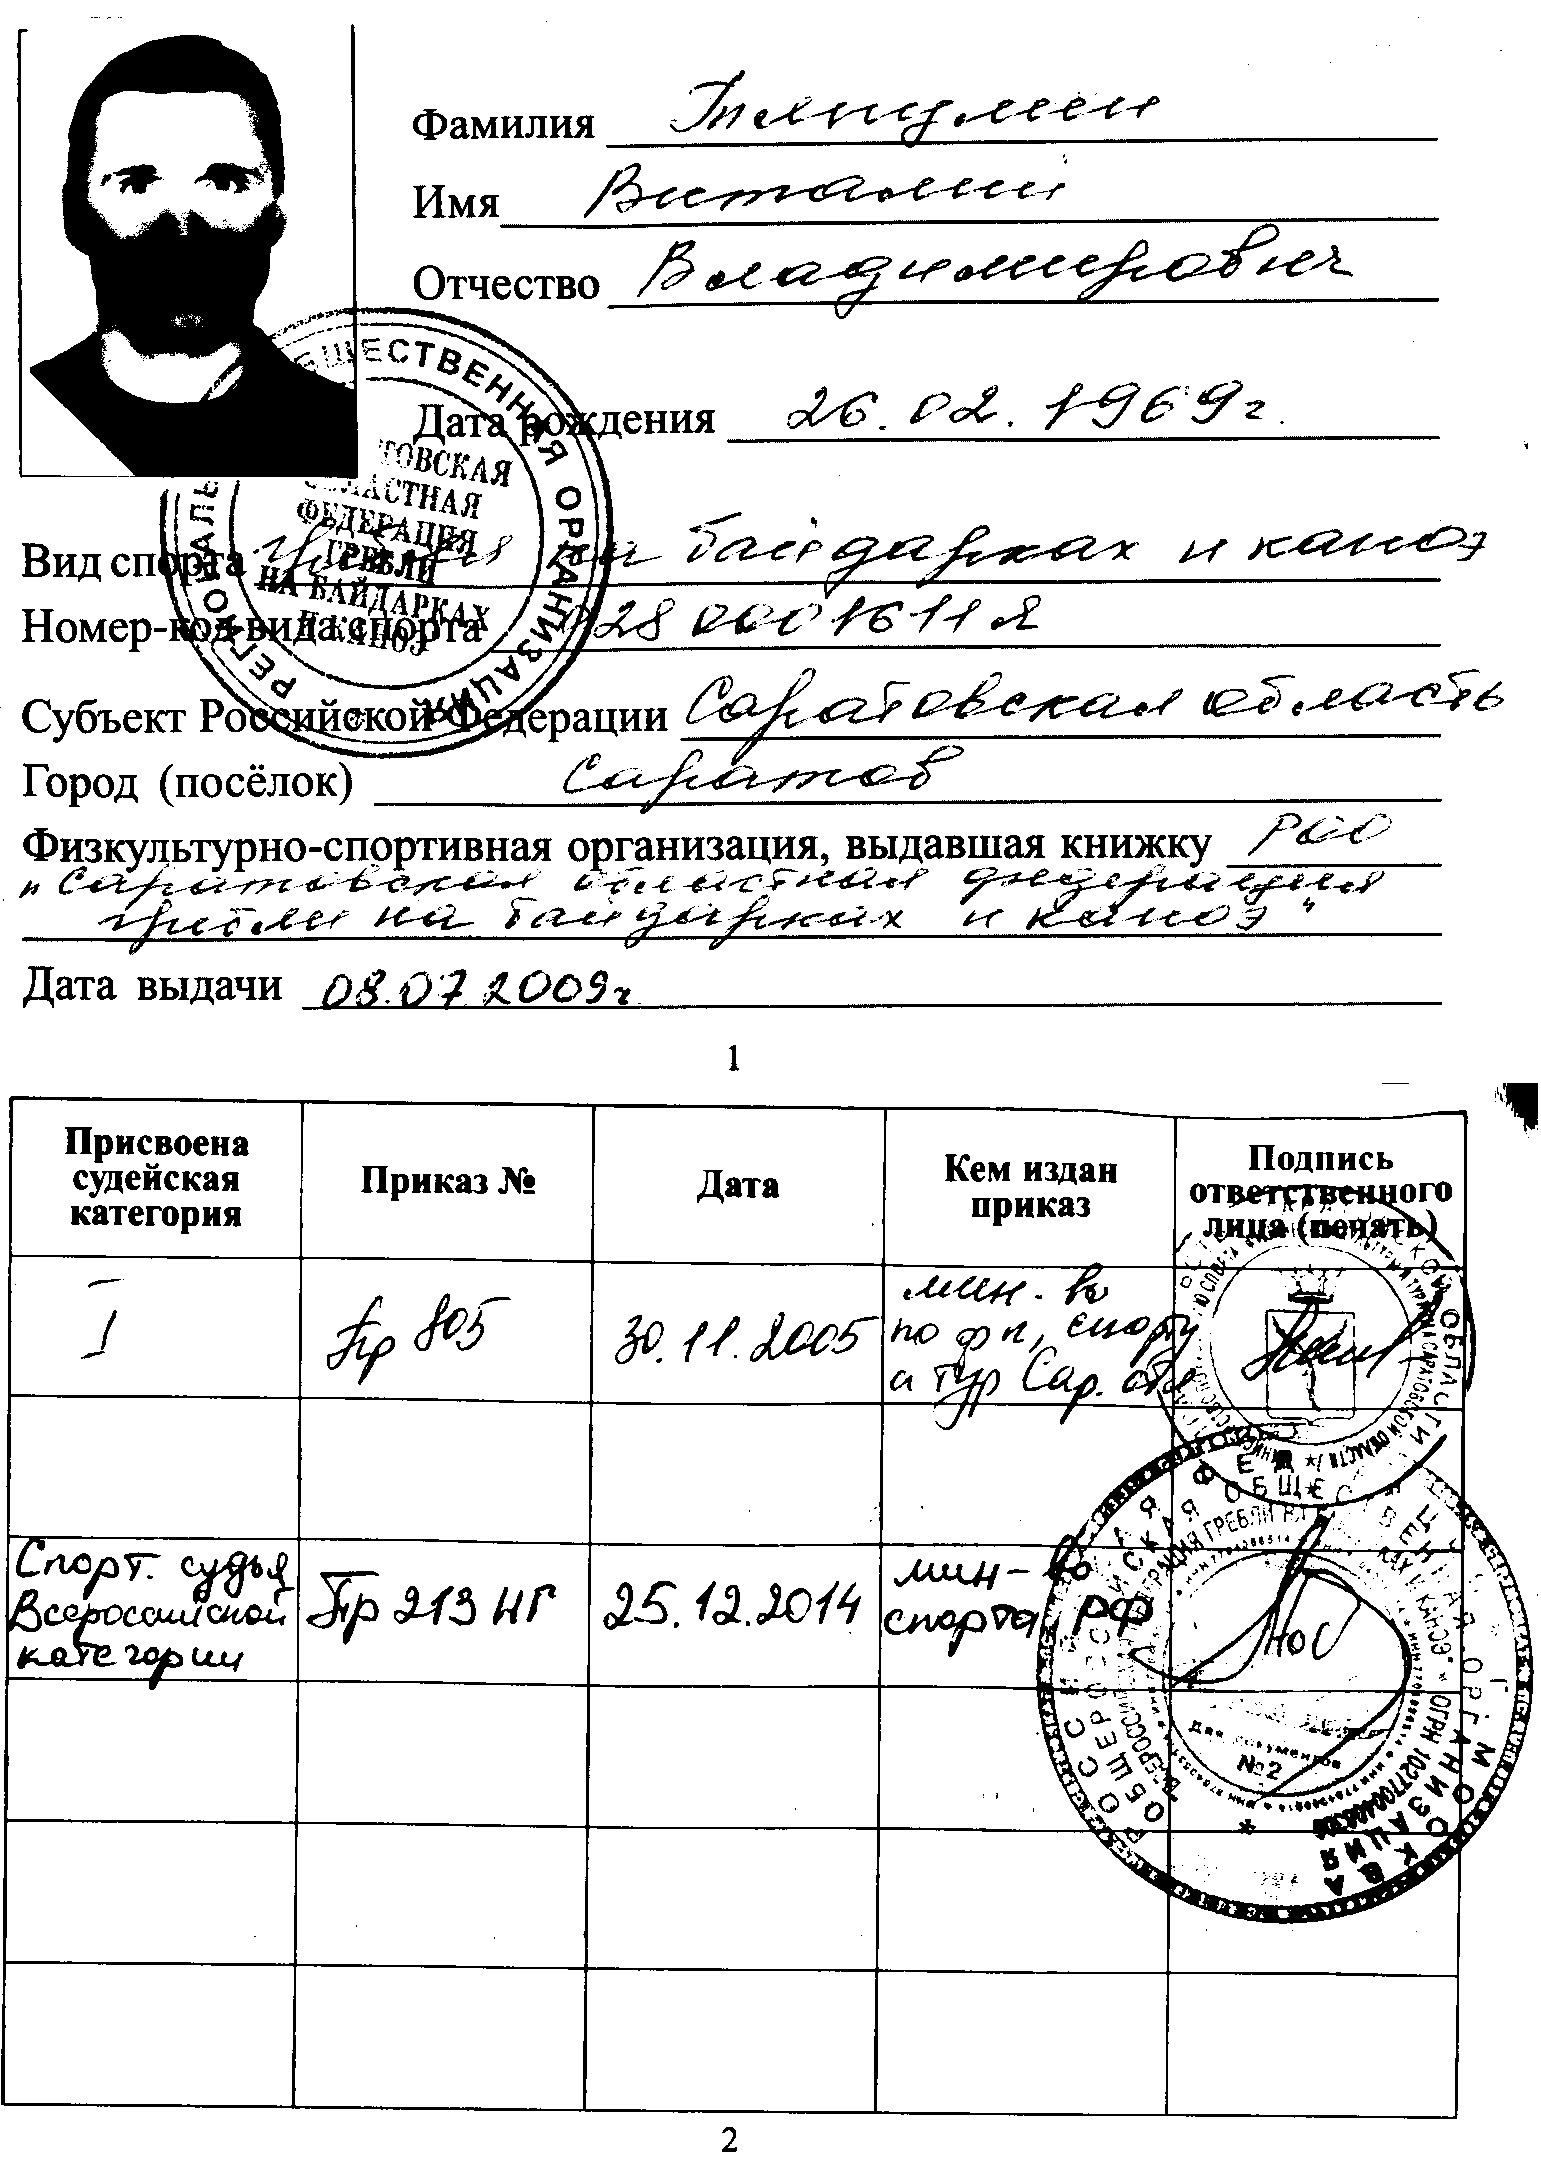 Фамилия
Имя Виталий
Отчество Владимирович
Дата рождения 26.02.1969г.
Вид спорта гребля на байдарках и каноэ
Номер-код вида спорта 0280001611Я
Субъект Российской Федерации Саратовская область
Город (посёлок) Саратов
Физкультурно-спортивная организация, выдавшая книжку РОО
"Саратовская областная федерация
гребли на байдарках и каноэ"
Дата выдачи 08.07.2009г
РЕГИОНАЛЬ ОБЩЕСТВЕННАЯ ОРГАНИЗАЦИЯ
ТОВСКАЯ
ОБЛАСТНАЯ
ФЕДЕРАЦИЯ
ГРЕБЛИ
НА БАЙДАРКАХ
И КАНОЭ
1
Присвоена судейская категория
Приказ №
Дата
Кем издан приказ
Подпись ответственного лица (печать)
I
Пр 805
30.11.2005
мин-во
по фк, спорту
и тур Сар. обл
Спорт. судья
Всероссийской
категории
Пр 213 НГ
25.12.2014
мин-во
спорта РФ
для документов
№2
2